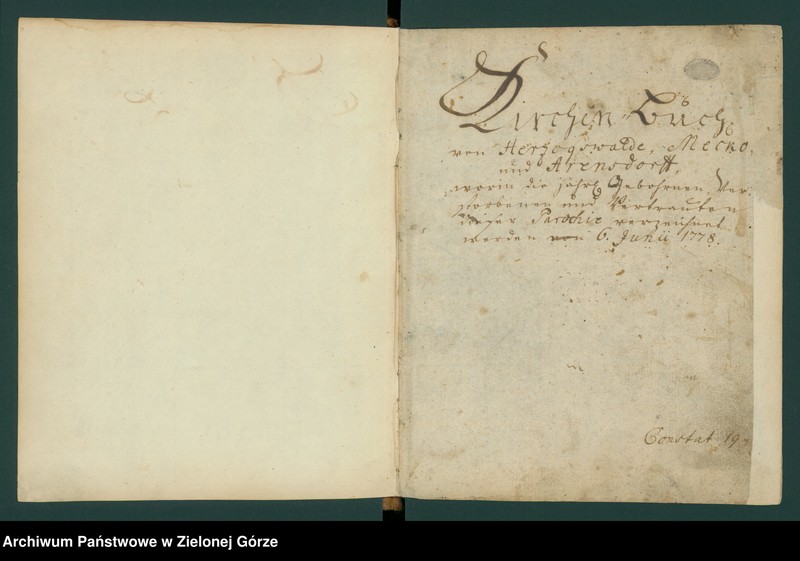 Kirchen-Buch
von Hertzogswalde, Mecko,
und Arensdorff,
worin die jährl. Gebohrnen, Ver-
storbenen und Vertrauten
dieser Parochie verzeichnet
werden von 6. Junii 1778.
Constat 19
Archiwum Państwowe w Zielonej Górze